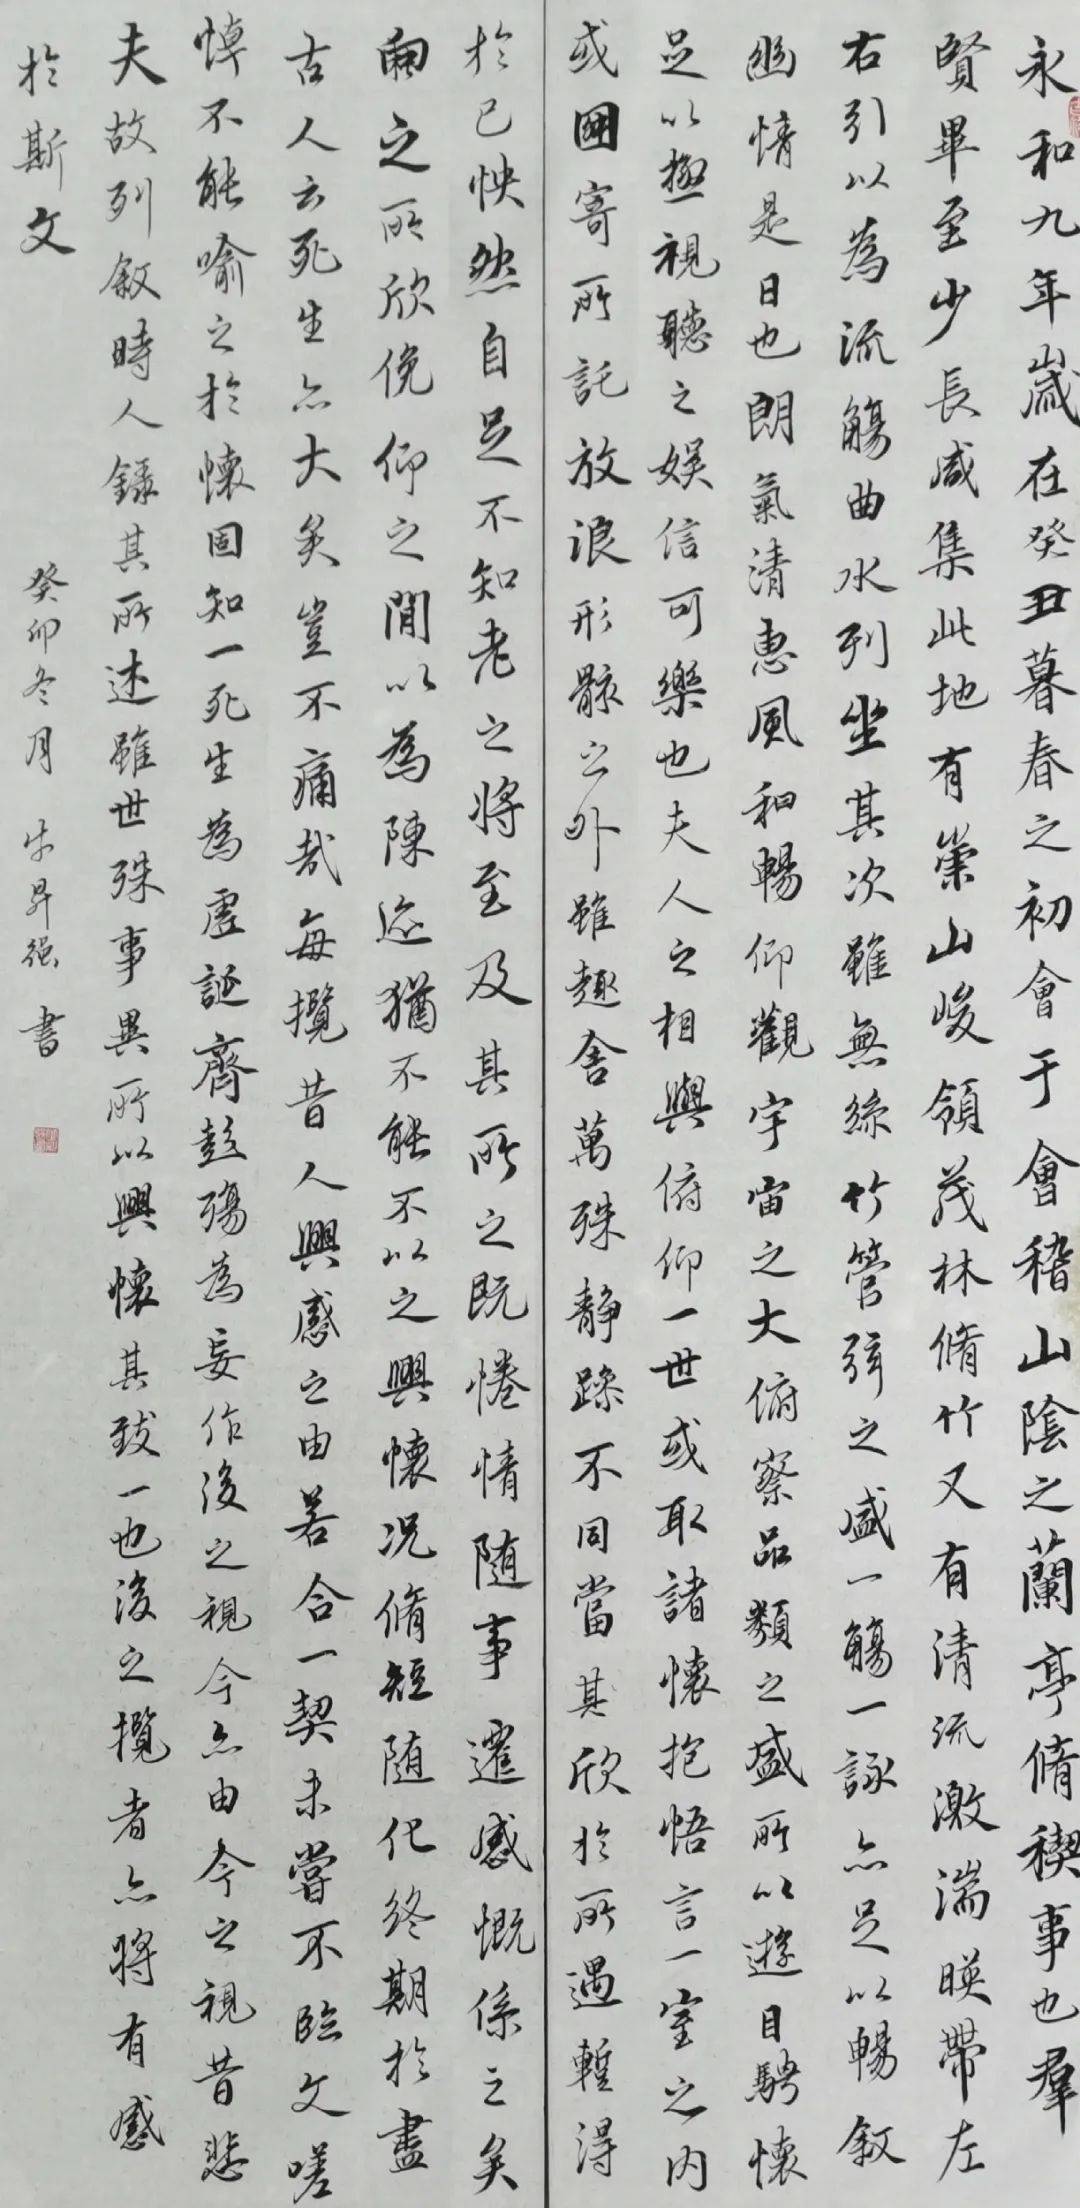 永和九年歲在癸丑暮春之初會于會稽山陰之蘭亭脩稧事也羣
賢畢至少長咸集此地有崇山峻領茂林脩竹又有清流激湍暎帶左
右引以為流觴曲水列坐其次雖無絲竹管弦之盛一觴一詠亦足以暢敘
幽情是日也朗氣清惠風和暢仰觀宇宙之大俯察品類之盛所以遊目騁懷
足以極視聽之娛信可樂也夫人之相與俯仰一世或取諸懷抱悟言一室之內
或因寄所託放浪形骸之外雖趣舍萬殊靜躁不同當其欣於所遇暫得
於己怏然自足不知老之將至及其所之既惓情隨事遷感慨係之矣
向之所欣俛仰之間以為陳迹猶不能不以之興懷況脩短隨化終期於盡
古人云死生亦大矣豈不痛哉每攬昔人興感之由若合一契未嘗不臨文嗟
悼不能喻之於懷固知一死生為虛誕齊彭殤為妄作後之視今亦由今之視昔悲
夫故列敘時人錄其所述雖世殊事異所以興懷其致一也後之攬者亦將有感
於斯文
癸卯冬月 牛昇强書